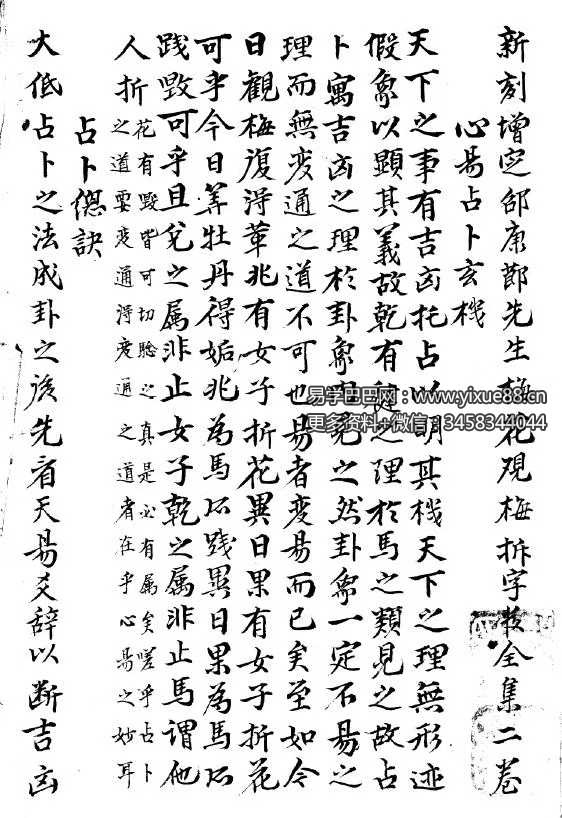 新刻增定邵康節先生梅花观梅拆字数全集二巻
心易占卜玄機
天下之事有吉凶托占以明其機天下之理無形迹
假象以顯其義故乾有健之理於馬之類見之故占
卜寓吉凶之理於卦象見之然卦象一定不易之
理而無变通之道不可也易者变易而已矣至如今
日觀梅復得革兆有女子折花異日果有女子折花
可乎今日筭牡丹得姤兆為馬所踐異日果為馬所
踐毀可乎且兌之属非止女子乾之属非止馬謂他
人折
花有毀皆可切驗之真是必有属矣嗟乎占卜
之道要变通得变通之道者在乎心易之妙耳
占卜總訣
大低占卜之法成卦之後先看天易爻辞以断吉凶
易学巴巴网：www.yixue88.cn
更多资料+微信13458344044